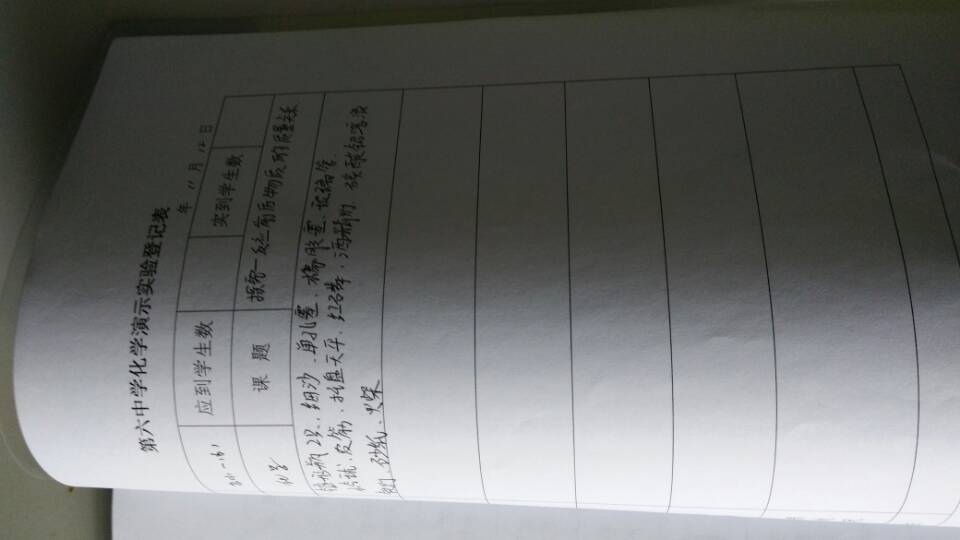 第六中学化学演示实验登记表
年 11 月 12 日
应到学生数 实到学生数
化学 课 题 探究一 反应前后物质的质量关系
锥形瓶 2只、细沙、单孔塞、橡胶塞、玻璃管
皮筋、托盘天平、红磷、酒精灯、硫酸铜溶液
砂纸、火柴